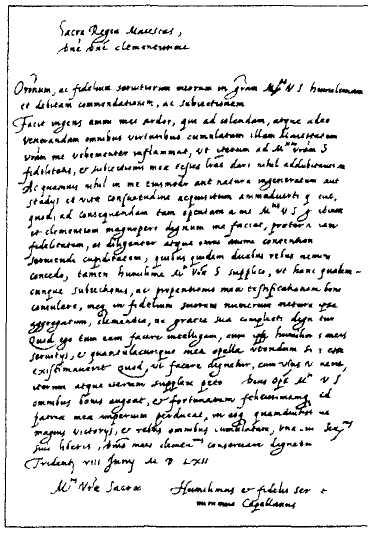 Sacra Regia Maiestas,
dne dne clementissime
Orationum, ac fidelium servitiorum meorum in gram Mtis V S humilimam
et debitam commendationem, ac subiectionem
Facit ingens animi mei ardor, quo ad colendam, atque adeo
venerandam omnibus virtutibus cumulatam illam Maiestatem
vram me vehementer inflammat, ut iterum ad Mtem vram S
fidelitatis, et subiectionis meae testes lras dari nihil addubitaverim
Ac quamvis nihil in me eiusmodi aut natura ingeneratum aut
studys et vitae consuetudine acquisitum animadverti
quod, ad consequendam tam optatam a me Mtis V S
et clementiam magnopere dignum me faciat, praeter
fidelitatem, et diligentem atque omni animi contentione
serviendi cupiditatem, quibus quidem duabus rebus nemini
concedo, tamen humilime Mti Vrae S supplico, ut hanc qualem-
cunque subiectionis, ac propensionis meae testificationem boni
consulere, meque in fidelium suorum numerum
aggregatum, clementia, ac gratia sua complecti dignetur
Quod ego tum eam facere intelligam, cum humilibus meis
servitys, et quantulacunque mea opella utendum esse
existimaverit Quod, ut facere dignetur, eam
iterum atque iterum supplex peto Deus Opt Mtem V S
omnibus bonis augeat, et fortunatam felicissimamque ad
patria mea imperium perducat, in eoque quamdiutissime
magnis victorys, et rebus omnibus cumulatam, una cum Sermis
suis liberis, clemenr conservare dignetur
Tridenti VIII Juny M D LXII
Mtis Vrae Sacrae
Humilimus et fidelis ser
minimus Capellanus